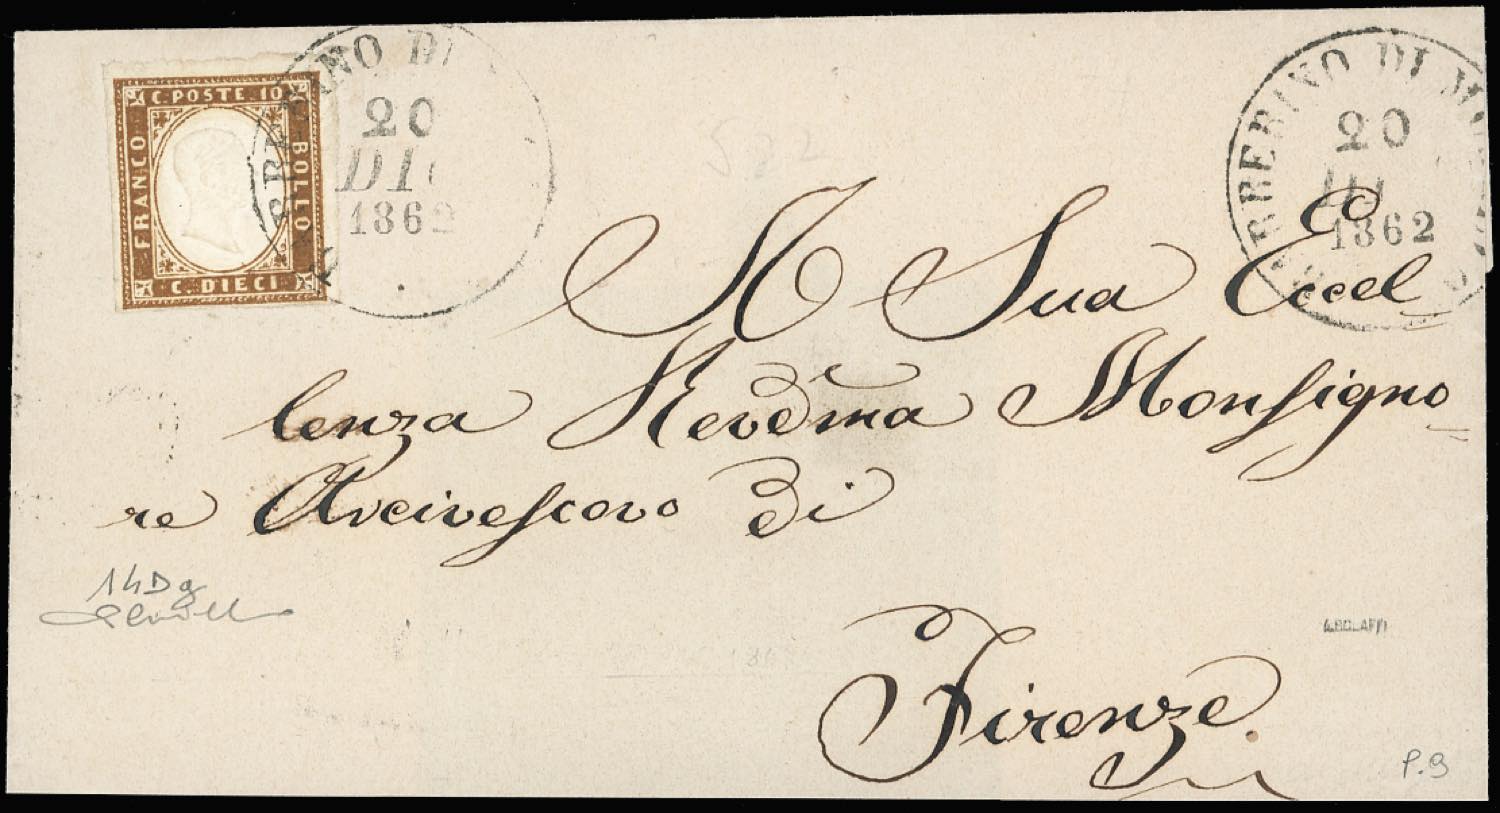 C. POSTE 10
FRANCO
BOLLO
C. DIECI
20
1862
BERINO DI
20
1862
A Sua Eccel
lenza Revdma Monsigno
re Arcivescovo di
Firenze
14Dg
A.BOLAFFI
P.9